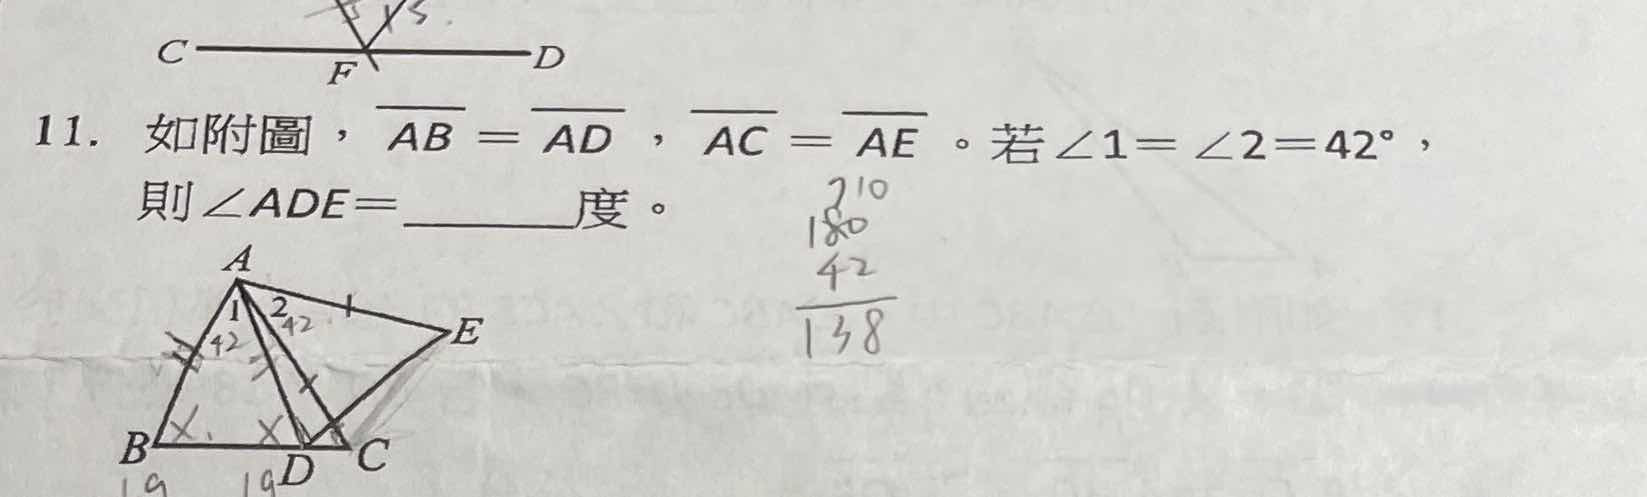 C F D
11. 如附圖，AB = AD，AC = AE。若∠1= ∠2=42°，
則∠ADE=______度。
210
180
42
138
A
1 2
42 42
E
B X. X D C
19 19